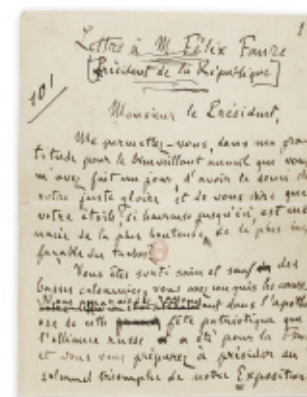 1
Lettre à M. Félix Faure
Président de la République
101
Monsieur le Président,
Me permettez-vous, dans ma gra
titude pour le bienveillant accueil que vous
m'avez fait un jour, d'avoir le souci de
votre juste gloire et de vous dire que
votre étoile, si heureuse jusqu'ici, est me
nacée de la plus honteuse, de la plus inef
façable des taches?
Vous êtes sorti sain et sauf des
basses calomnies, vous avez conquis les cœurs.
dans l'apothé
ose de cette fête patriotique que
l'alliance russe a été pour la
et vous vous préparez à présider au
solennel triomphe de notre Exposition